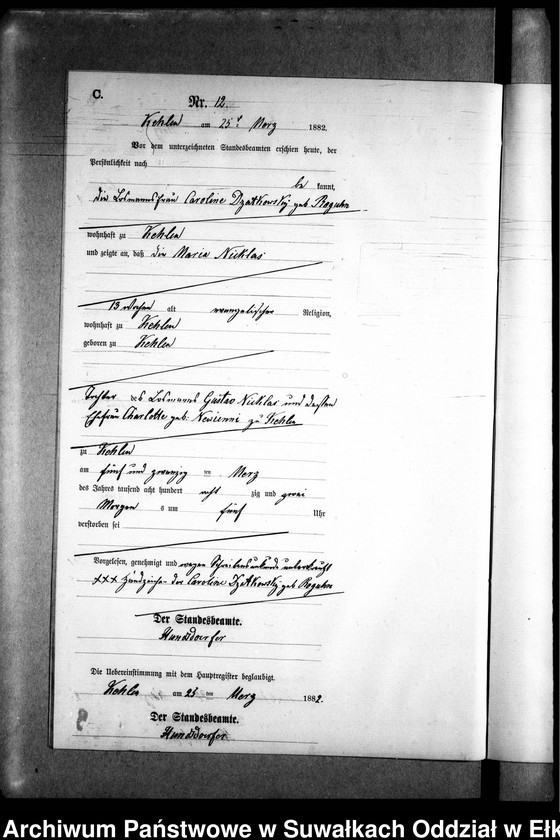 C.
Nr. 12.
Kehlen am 25t März 1882.
Vor dem unterzeichneten Standesbeamten erschien heute, der
Persönlichkeit nach
be kannt,
die Losmannsfrau Caroline Dzatkowsky geb. Roguhn
wohnhaft zu Kehlen
und zeigte an, daß die Maria Nicklas
13 Wochen alt evangelischer Religion,
wohnhaft zu Kehlen
geboren zu Kehlen
Tochter des Losmanns Gustav Nicklas und dessen
Ehefrau Charlotte geb. zu Kehlen
zu Kehlen
am fünf und zwanzig ten März
des Jahres tausend acht hundert acht zig und zwei
Morgens um fünf Uhr
verstorben sei
Vorgelesen, genehmigt und wegen Schreibensunkunde unterkreuzt
XXX Handzeichen der Caroline Dzatkowsky geb. Roguhn
Der Standesbeamte.
Hundsdoerfer
Die Uebereinstimmung mit dem Hauptregister beglaubigt.
Kehlen am 25 ten März 1882.
Der Standesbeamte.
Hundsdoerfer
Archiwum Państwowe w Suwałkach Oddział w Ełk